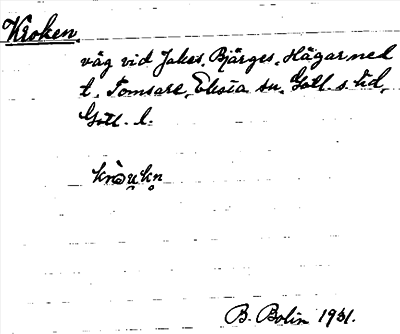 Kroken.
väg vid Jakes, Bjärges, Hägar ned
t. Tomsare, Eksta sn. Gotl. s. hd,
Gotl. l.
B. Bolin 1931.